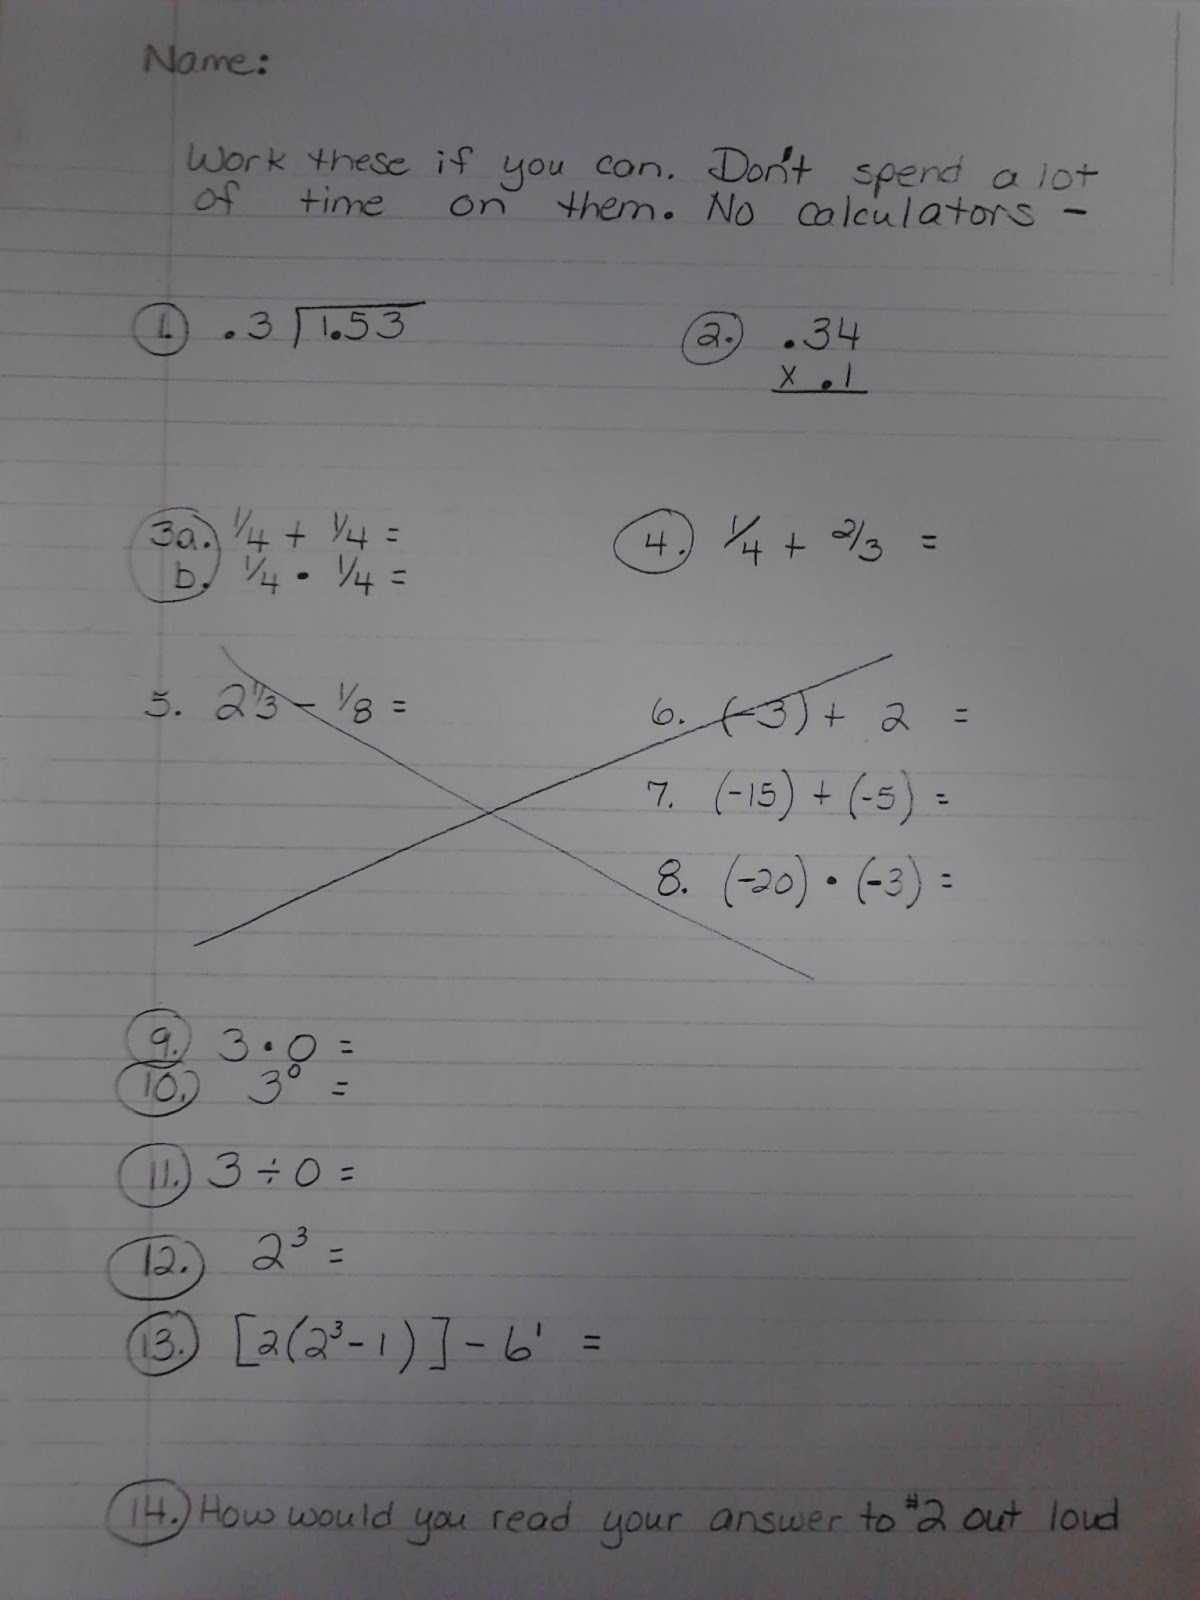 Name:
Work these if you can. Don't spend a lot
of time on them. No calculators -
1. .3 ⟌1.53
2. .34
x .1
3a. 1/4 + 1/4 =
b. 1/4 • 1/4 =
4. 1/4 + 2/3 =
5. 2 1/3 - 1/8 =
6. (-3) + 2 =
7. (-15) + (-5) =
8. (-20) • (-3) =
9. 3 • 0 =
10. 3⁰ =
11. 3 ÷ 0 =
12. 2³ =
13. [2(2³-1)] - 6¹ =
14. How would you read your answer to #2 out loud